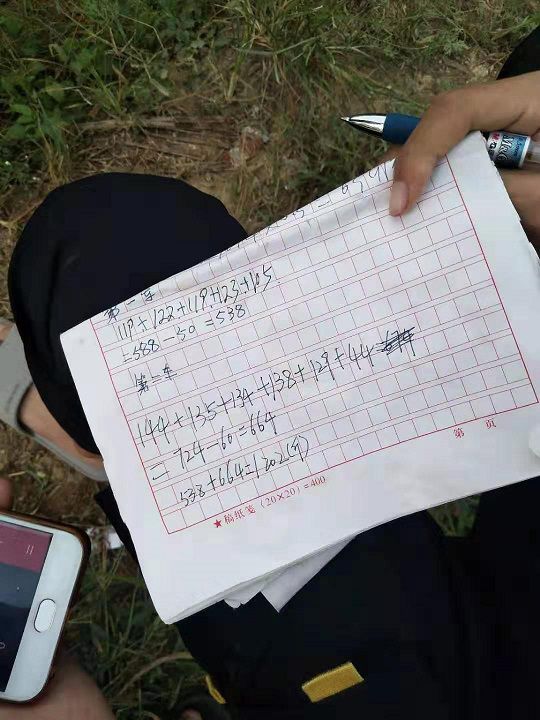 第一车
119+122+119+123+105
=588-50=538
第二车
144+135+134+138+129+44
=724-60=664
538+664=1202(斤)
第 页
★稿纸笺（20×20）=400